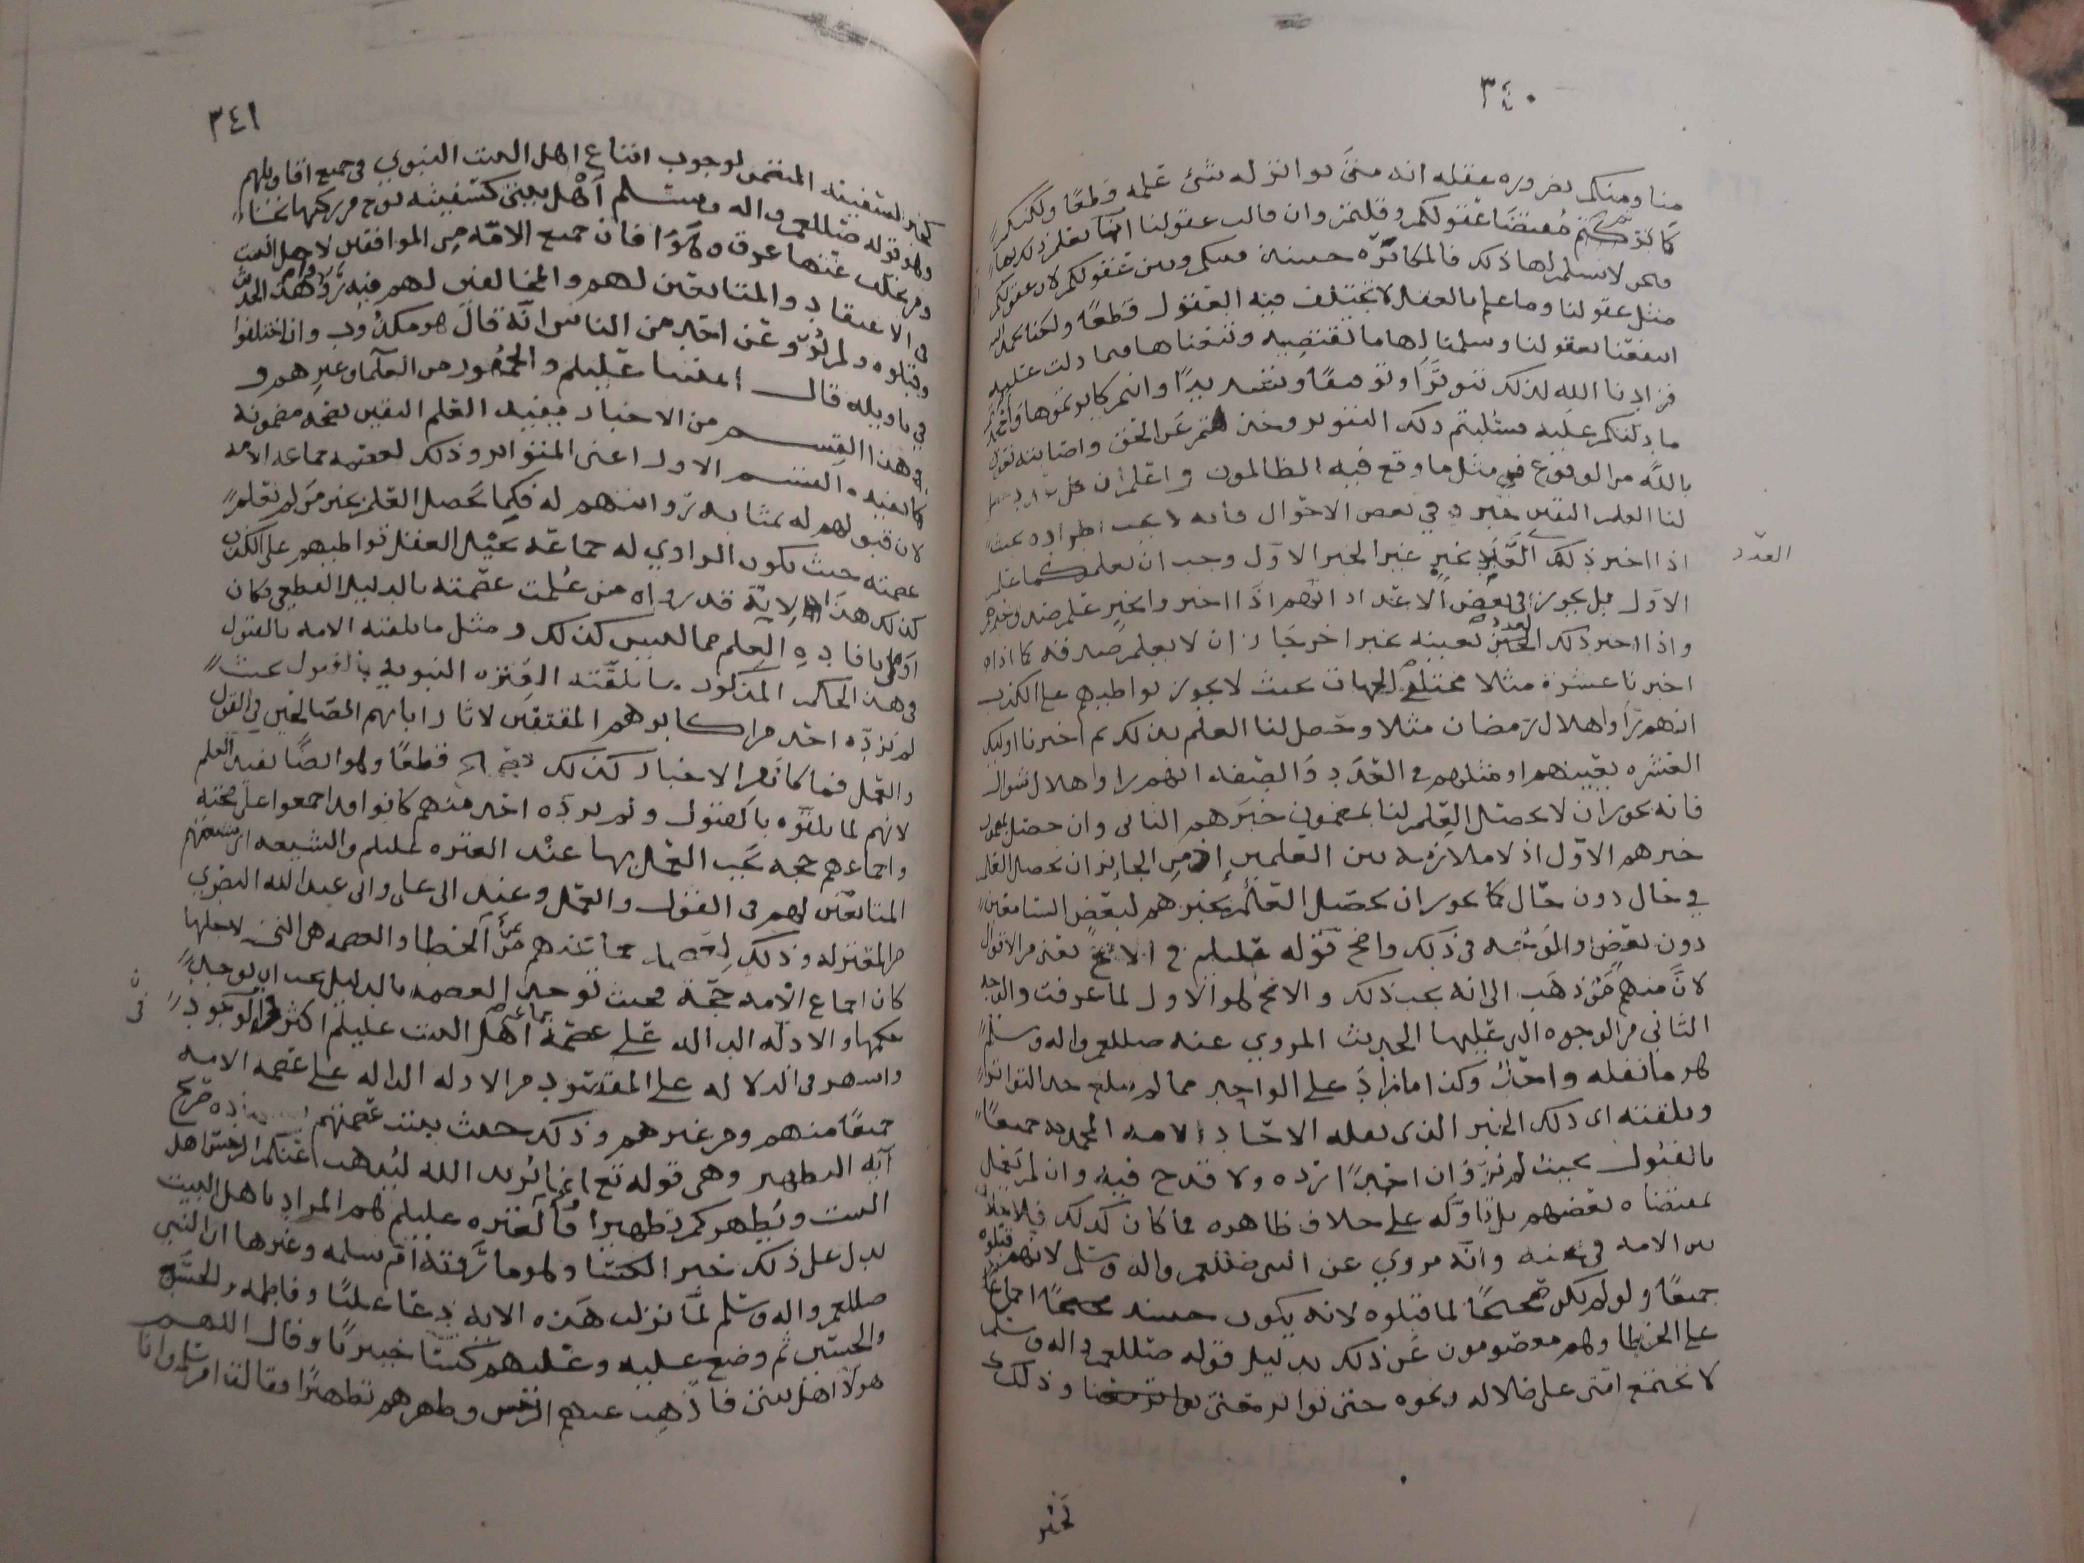 ٣٤٠
منا ومنكم بضروره عقله انه متى تواتر له شئ علمه قطعًا ولكنكم
تركتم مقتضا عقولكم وقلتم وان قالت عقولنا انا نعلم ذلك بها
ونحن لا نسلم لها ذلك فالمكابره حينئذ منكم وبين عقولكم لان عقولكم
مثل عقولنا وما علم بالعقل لا تختلف فيه العقول قطعًا ولكنا بحمد الله
انتفعنا بعقولنا وسلمنا لها ما تقتضيه وتتبعناها فيما دلت عليه
فزادنا الله لذلك تنويرًا وتوفيقًا وتسديدًا وانتم كابرتموها
ما دلتكم عليه فسلبتم ذلك التنوير وخرجتم عن الحق واصابته نعوذ
بالله من الوقوع في مثل ما وقع فيه الظالمون واعلم ان
لنا العلم اليقين خبره في بعض الاحوال فانه لا يجب اطراده بحيث
اذا اخبر ذلك العدد بخبر غير الخبر الاول وجب ان نعلمه كما علم
العدد
الاول بل يجوز في بعض الاعداد انهم اذا اخبروا بخبر علم صدقه
واذا اخبر ذلك العدد بعينه بخبر اخر جاز ان لا يعلم صدقه كما اذا
اخبرنا عشرة مثلا مختلفي الجهات بحيث لا يجوز تواطيهم على الكذب
انهم راوا هلال رمضان مثلا وحصل لنا العلم بذلك ثم اخبرنا اولئك
العشره بعينهم او مثلهم في العدد والصفه انهم راوا هلال شوال
فانه يجوز ان لا يحصل العلم لنا بمضمون خبرهم الثاني وان حصل بمضمون
خبرهم الاول اذ لا ملازمه بين العلمين اذ من الجايز ان يحصل العلم
في حال دون حال كما يجوز ان يحصل العلم بخبرهم لبعض السامعين
دون بعض والوجه في ذلك واضح قوله عليلم في الاصح يعني من الاقوال
لان منهم من ذهب الى انه يجب ذلك والاصح هو الاول لما عرفت والوجه
الثاني من الوجوه التي عليها الحديث المروي عنه صللعم واله وسلم
هو ما نقله واحد وكذا ما زاد على الواحد مما لم يبلغ حد التواتر
وتلقته اى ذلك الخبر الذى نقله الاحاد الامه المحمديه جميعًا
بالقبول بحيث لم يرو ان احدًا رده ولا قدح فيه وان لم يعمل
بمقتضاه بعضهم بل تاوله على خلاف ظاهره فما كان كذلك فلا خلاف
بين الامه في صحته وانه مروي عن النبي صللعم واله وسلم لانهم قبلوه
جميعًا ولو لم يكن صحيحًا لما قبلوه لانه يكون حينئذ اجماعًا
على الخطا وهم معصومون عن ذلك بدليل قوله صللعم واله وسلم
لا تجتمع امتى على ضلاله ونحوه حتى تواتر معنى وذلك
كخبر
٣٤١
كخبر السفينه المتضمن لوجوب اتباع اهل البيت النبوي في جميع اقاويلهم
وهو قوله صللعم واله وسلم اهل بيتى كسفينه نوح من ركبها نجا
ومن تخلف عنها غرق وهوا فان جميع الامه من الموافقين لاهل البيت
في الاعتقاد والمتابعين لهم والمخالفين لهم فيه رووا هذا الحديث
وقبلوه ولم يرو عن احد من الناس انه قال هو مكذوب وان اختلفوا
في تاويله قال ائمتنا عليلم والجمهور من العلما وغيرهم و
وهذا القسم من الاخبار يفيد العلم اليقين بصحه مضمونه
كما يفيده القسم الاول اعنى المتواتر وذلك لعصمه جماعه الامه
لان قبولهم له بمثابه روايتهم له فكما يحصل العلم بخبر من لم نعلم
عصمته حيث يكون الراوي له جماعه يحيل العقل تواطيهم على الكذب
كذلك هذا لانه قد رواه من علمت عصمته بالدليل القطعي فكان
اولى بافاده العلم مما ليس كذلك ومثل ما تلقته الامه بالقبول
في هذا الحكم المذكور ما تلقته العترة النبويه بالقبول بحيث
لم يرده احد من اكابرهم المقتفين لاثار ابايهم الصالحين في القول
والعمل فما كان من الاخبار كذلك قطعًا وهو ايضًا يفيد العلم
لانهم لما تلقوه بالقبول ولم يرده احد منهم كانوا قد اجمعوا على صحته
واجماعهم حجه يجب العمل بها عند العتره عليلم والشيعه
المتابعين لهم في القول والعمل وعند ابى على وابى عبد الله البصري
من المعتزله وذلك جماعتهم عن الخطا والعصمه هي التي لاجلها
كان اجماع الامه حجة فحيث توجد العصمه بالدليل يجب ان يوجد
حكمها والادله الداله على عصمة جماعه اهل البيت عليلم اكثر في الوجود
واشهر فى الدلاله على المقصود من الادله الداله على عصمه الامه
جميعًا منهم ومن غيرهم وذلك حيث بينت عصمتهم صريح
آيه التطهير وهى قوله تع انما يريد الله ليذهب عنكم الرجس اهل
البيت ويطهركم تطهيرا والعتره عليلم هم المراد باهل البيت
يدل على ذلك خبر الكسا وهو ما روته ام سلمه وغيرها ان النبي
صللعم واله وسلم لما نزلت هذه الايه دعا عليًا وفاطمه والحسن
والحسين ثم وضع عليه وعليهم كسًا خيبريًا وقال اللهم
هولا اهل بيتى فاذهب عنهم الرجس وطهرهم تطهيرًا فقالت ام سلمه وانا